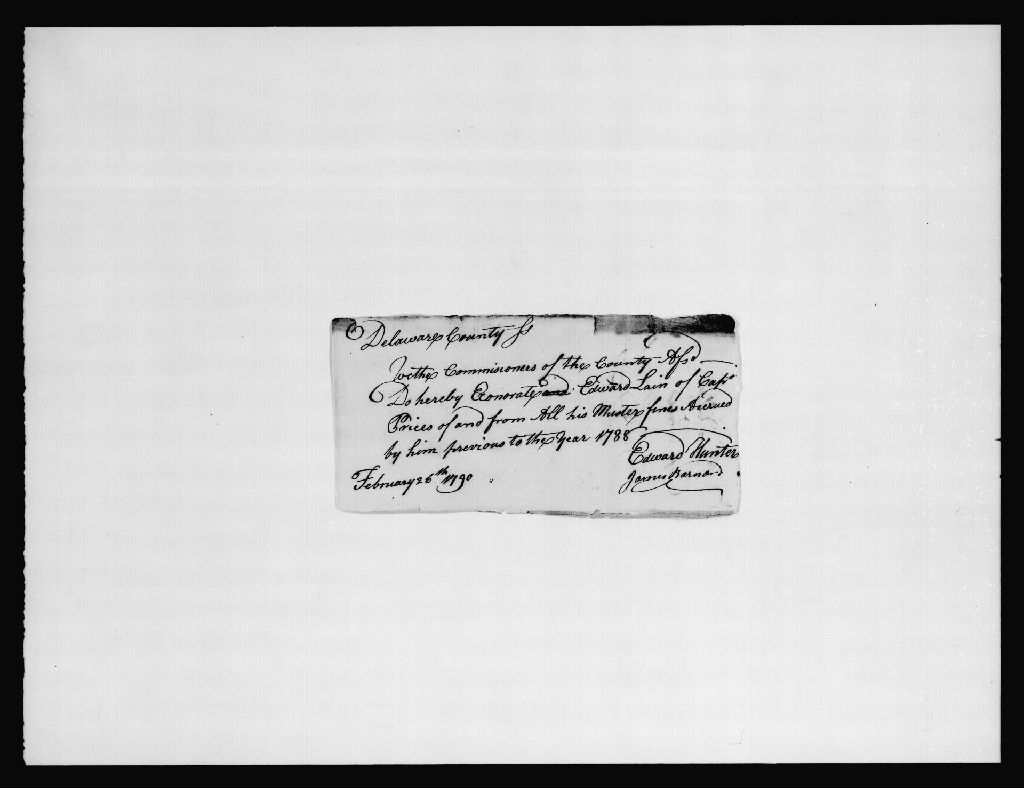 Delaware County Ss
We the Commisioners of the County Afsd
Do hereby Exonorate and Edward Lain of Capt
Prices of and from All his Muster fines Accrued
by him previous to the Year 1788
Edward Hunter
February 26th 1790
James Barnard